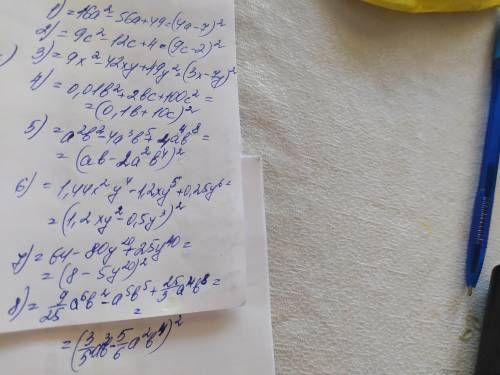 1) = 16a² - 56a + 49 = (4a - 7)²
2) = 9c² - 12c + 4 = (9c - 2)²
3) = 9x² - 42xy + 49y² = (3x - 7y)²
4) = 0,01b² + 2bc + 100c² =
= (0,1b + 10c)²
5) = a²b² - 4a³b⁵ + 4a⁴b⁸ =
= (ab - 2a²b⁴)²
6) = 1,44x²y⁴ - 1,2xy⁵ + 0,25y⁶ =
= (1,2xy² - 0,5y³)²
7) = 64 - 80y²⁰ + 25y⁴⁰ =
= (8 - 5y²⁰)²
8) = 9/25 a⁶b² - a⁵b⁵ + 25/3 a⁴b⁸ =
=
= (3/5 a³b - 5/6 a²b⁴)²